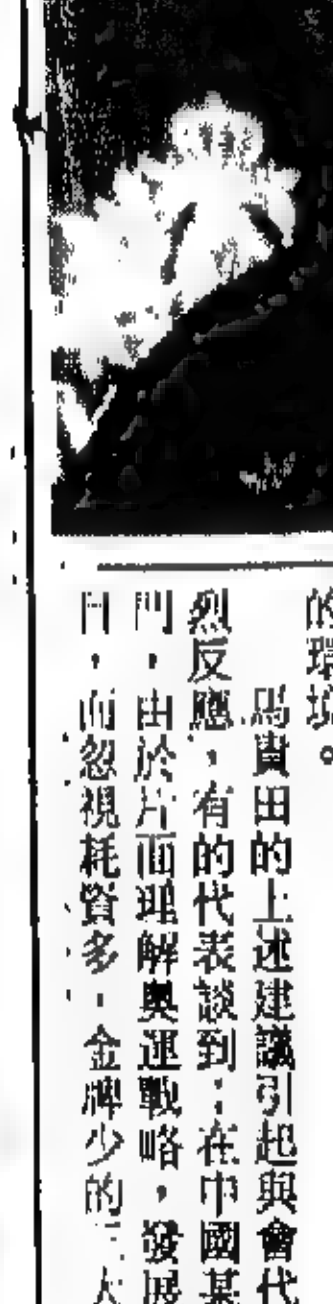 的環境。
馬貴田的上述建議引起與會代
烈反應，有的代表談到：在中國某
門，由於片面理解奧運戰略，發展
目，而忽視耗資多，金牌少的三大